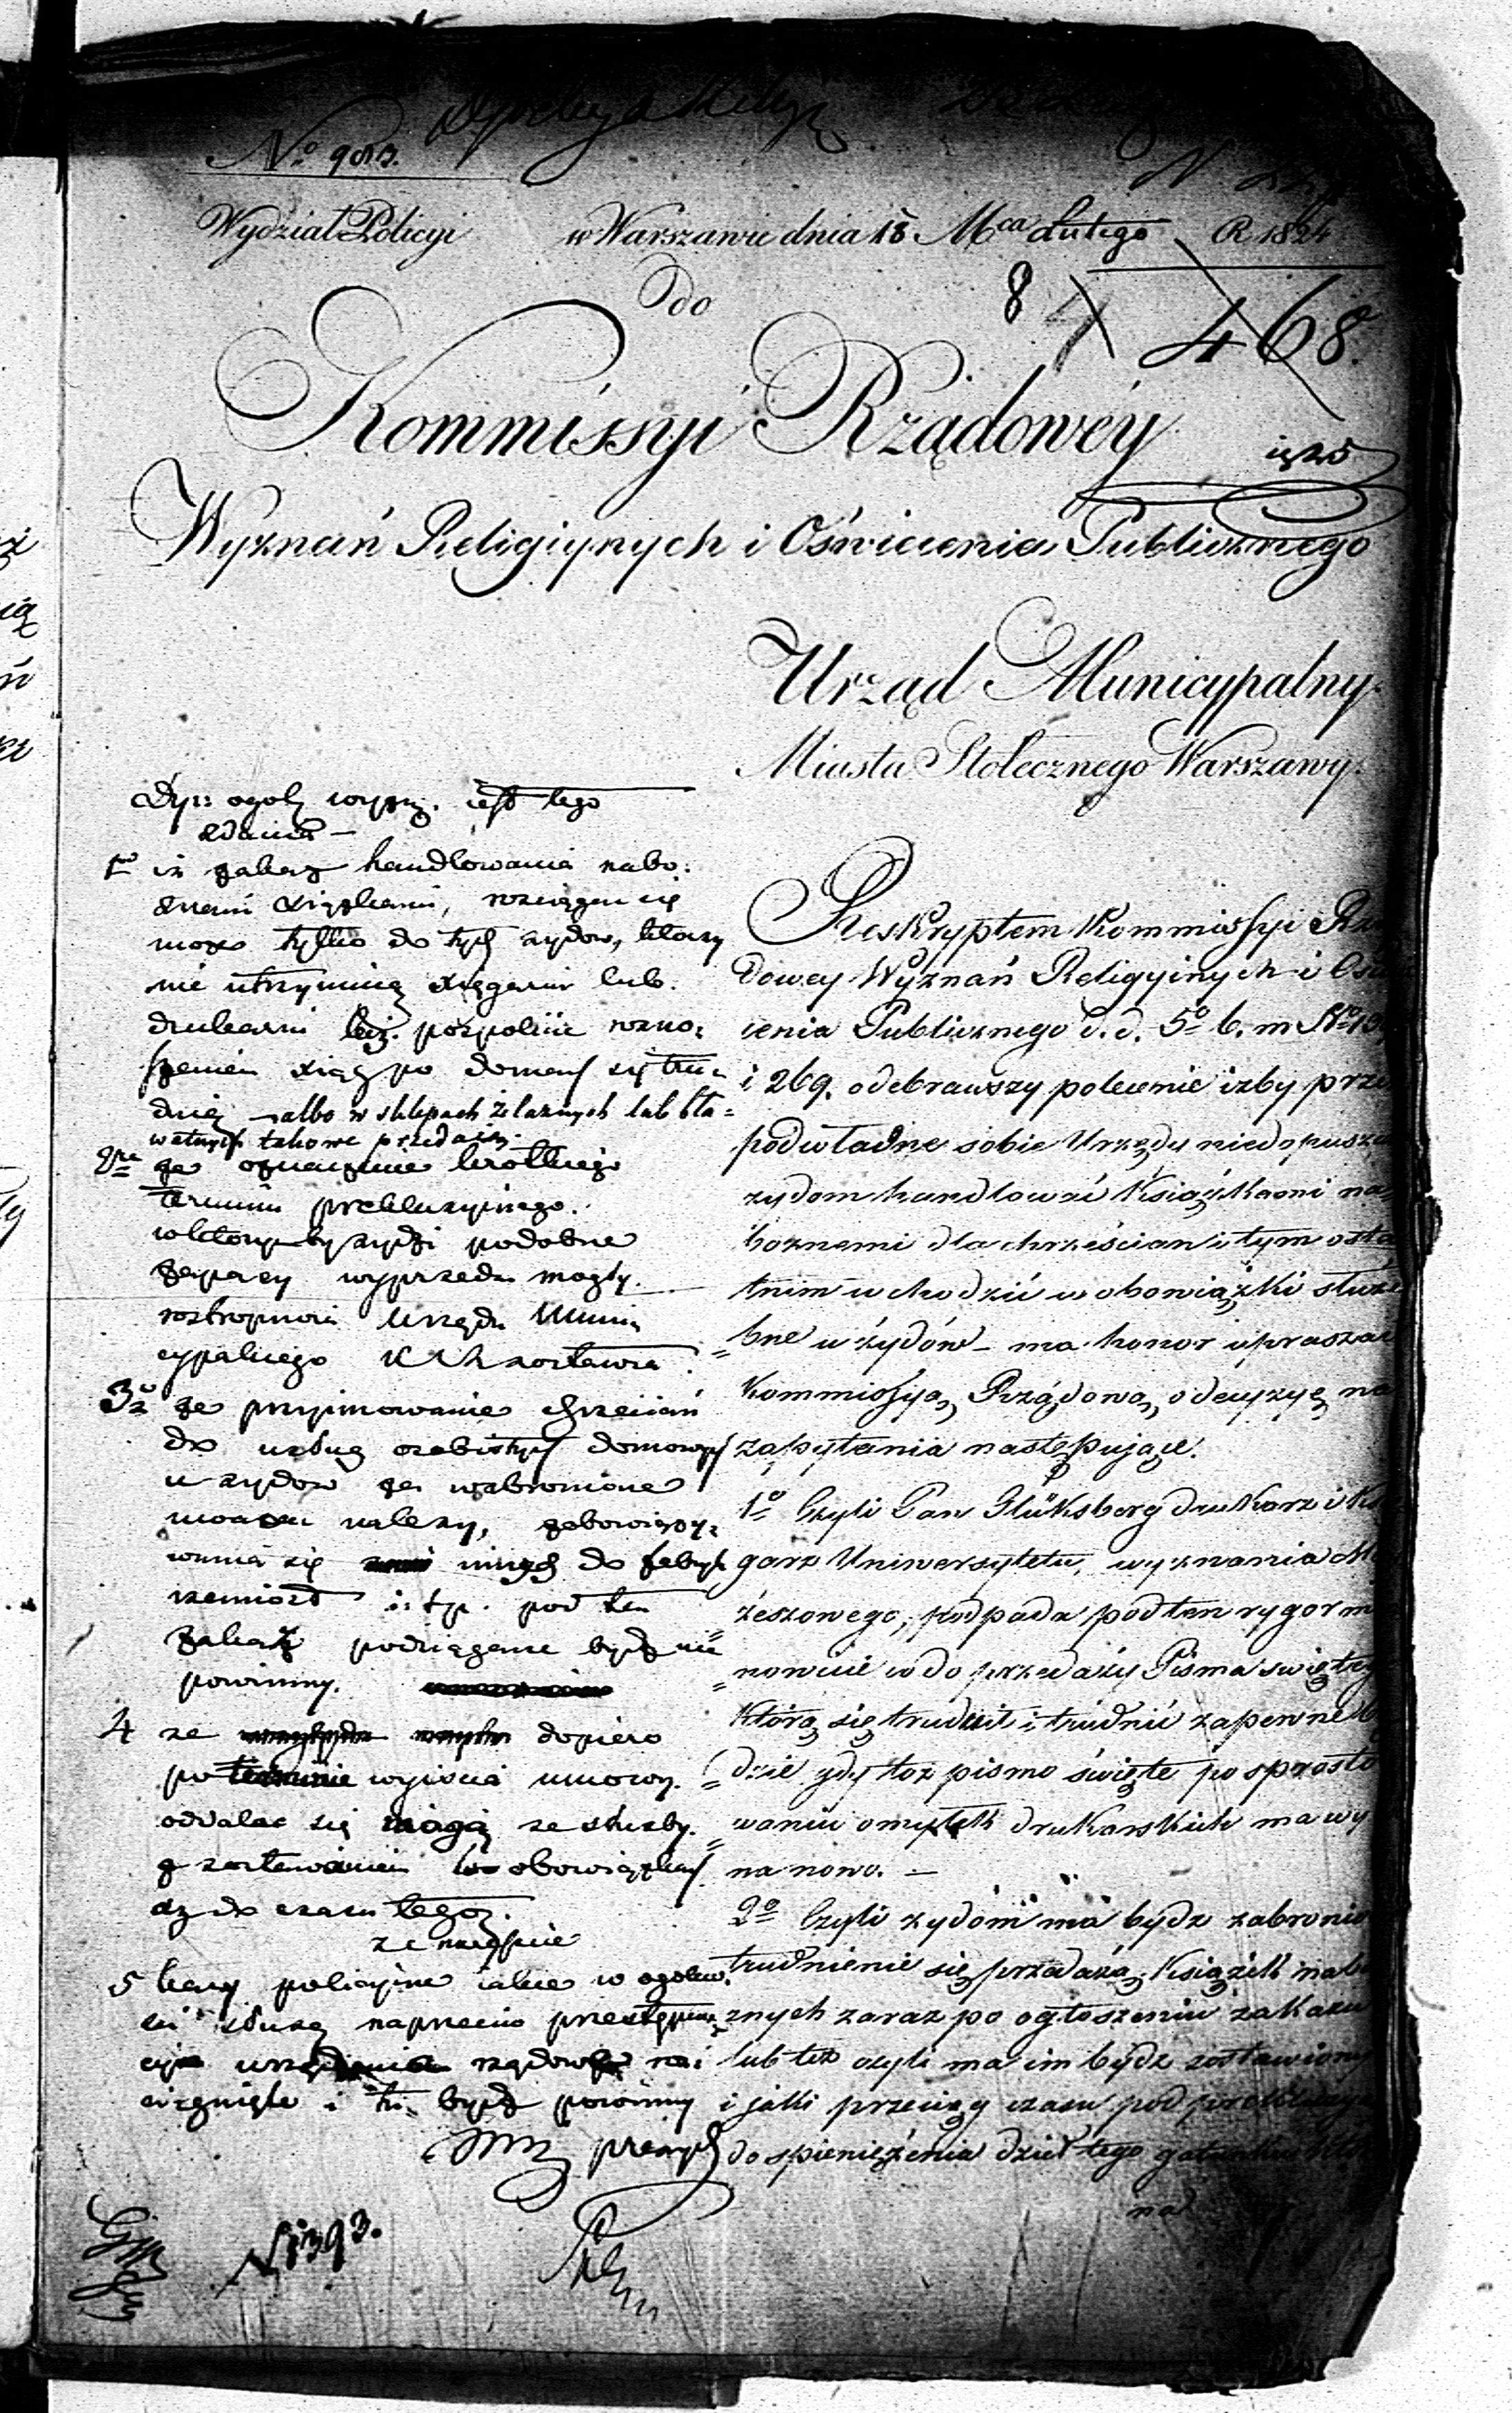 No 983.
Wydział Policyi w Warszawie dnia 18. Mca Lutego R 1824
do
8
468.
Kommissyi Rządowéy
Wyznań Religiynych i Oświecenia Publicznego
Urząd Municypalny
Miasta Stołecznego Warszawy.
Reskryptem Kommissyi Rzą
dowey Wyznań Religyinych i Ośw
cenia Publicznego d. d. 5o b. m No
i 269. odebrawszy polecenie izby przez
podwładne sobie Urzędy niedopuszcz
żydom handlować Książkami na
bożnemi dla chrześcian i tym osta
tnim wchodzić w obowiązki służe
bne u żydów – ma honor upraszać
Kommissyą Rządową o decyzyę na
zapytania następujące.
1o Czyli Pan Glüksberg drukarz i Ks
garz Uniwersytetu, wyznania Mo
żeszowego, podpada pod ten rygor mi
nowicie w do przedaży Pisma świętego
którą się trudnił i trudnić zapewne bę
dzie gdy toż pismo święte po sprosto
waniu omyłek drukarskich ma wy
na nowo. –
2o Czyli żydom ma bydz zabronio
trudnienie się przedażą Książek nabo
żnych zaraz po ogłoszeniu zakazu
lub też czyli ma im bydz zostawiony
i jaki przeciąg czasu pod prekluzyą
do spieniężenia dzieł tego gatunku
na
Dyr: ogól wyzn. jest tego
zdania –
1o iż zakaz handlowania nabo:
żnemi książkami, rozciągać się
może tylko do tych żydów, którzy
nie utrzymują księgarni lub
drukarni lecz pospolicie rozno:
szeniem ksiąg po domach się tru:
dnią – albo w sklepach żelaznych lub bła=
watnych takowe przedają.
2re że oznaczenie krótkiego
terminu prekluzyinego.
w którymby żydzi podobne
zapasy wyprzedać mogły.
roztropności Urzędu Muni
cypalnego zostawia
3o że przyimowanie chrześcian
do usług osobistych domowych
u żydów za wzbronione
uważać należy, zobowiązy:
wania się innych do fabryk
rzemiosł i t.p. pod ten
zakaz podciągane bydź nie
powinny.
4 że dopiero
po wyiściu umowy.
oddalać się mogą ze służby.
z zostawaniem w obowiązkach
aż do czasu tegoż.
że nareszcie
5 kary policyine iakie w ogólno:
ści służą naprzeciw przestępują
cym rządowe roz
ciągnięte i tu bydź powinny
N 1393.